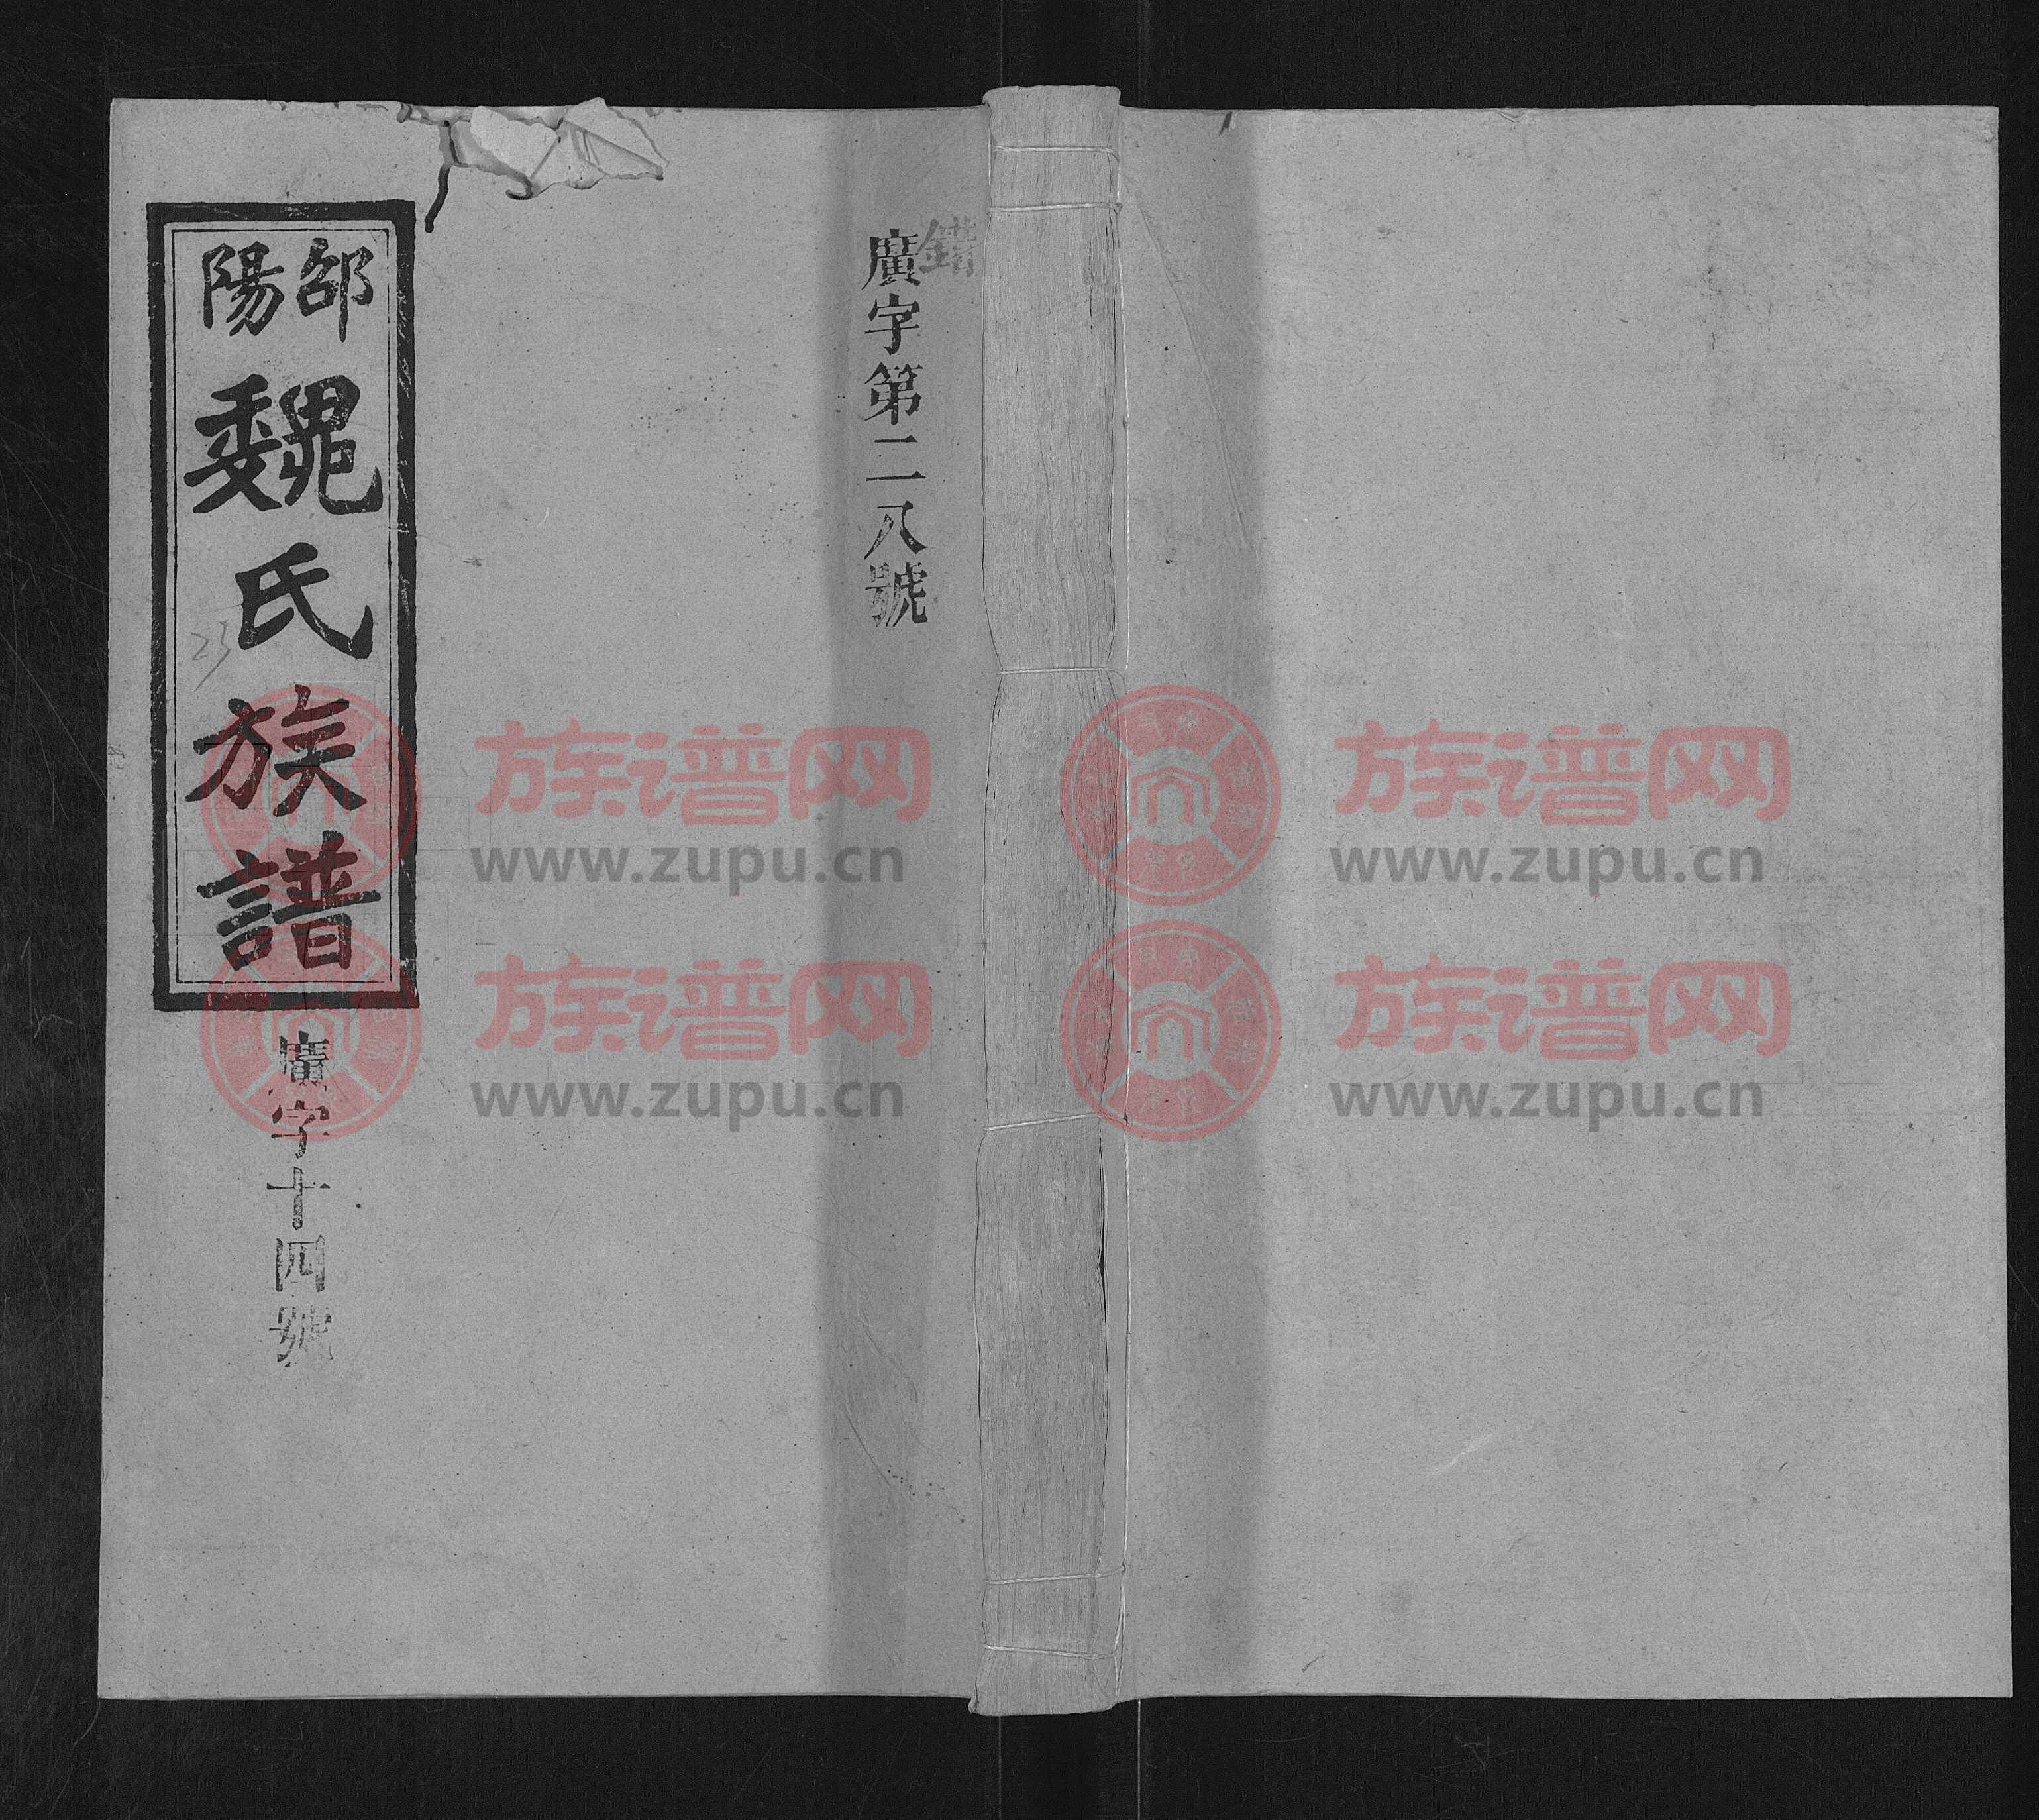 錯
廣字第二八號
邵陽
魏氏族譜
23
廣字十四號
族谱网
www.zupu.cn
族谱网
www.zupu.cn
族谱网
www.zupu.cn
族谱网
www.zupu.cn